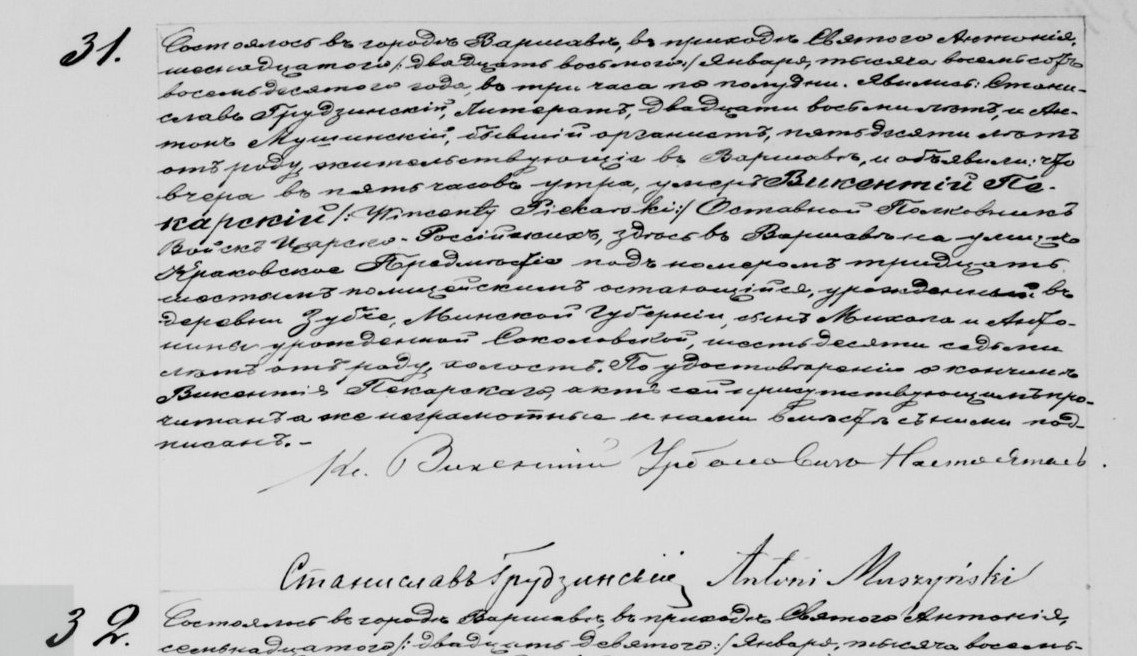 31.
Состоялось въ городѣ Варшавѣ, въ приходѣ Святого Антонія,
шеснадцатого /: двадцать восьмого:/ Января, тысяча восемьсотъ
восемьдесятого года, въ три часа по полудни. Явились: Стани-
славъ Грудзинскій, Литератъ, двадцати восьми лѣтъ, и Ан-
тонъ Мушинскій, бывшій органистъ, пятьдесяти лѣтъ
отъ роду, жительствующіе въ Варшавѣ, и объявили: что
вчера въ пять часовъ утра, умеръ Викентій Пе-
карскій /: Wincenty Piekarski:/ Оставной Полковникъ
Войскъ Царско-Россійскихъ, здѣсь въ Варшавѣ на улицѣ
Краковское Предмѣстіе подъ номеромъ тридцать
шестымъ полицейскимъ остающійся, урожденный въ
деревни Зубіе, Минской Губерніи, сынъ Михала и Анто-
нины урожденной Соколовской, шестьдесяти седьми
лѣтъ отъ роду, холостъ. По удостовѣреніи о кончинѣ
Викентія Пекарскаго, актъ сей присутствующимъ про-
читанъ а же неграмотные и нами вмѣстѣ съ ними под-
писанъ. -
Кс. Викентій Настоятель.
Станиславъ Грудзинскій Antoni Muszyński
32.
Состоялось въ городѣ Варшавѣ, въ приходѣ Святого Антонія,
семьнадцатого /: двадцать девятого:/ Января, тысяча восемь-